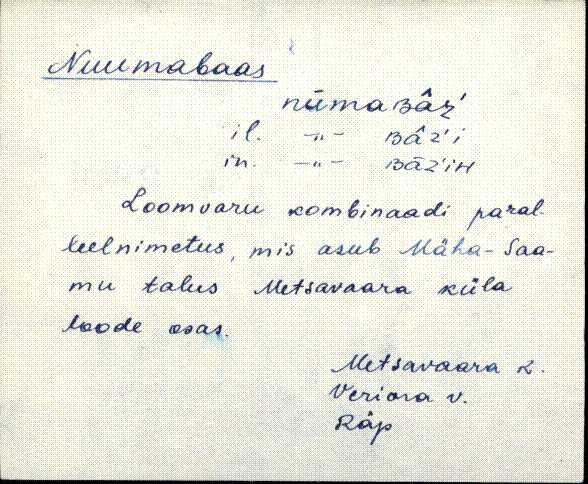 Nuumabaas
nūmaʙâź
il. -"- ʙâź'i
in. -"- ʙāź'iɴ
Loomvaru kombinaadi paral-
leelnimetus, mis asub Mäha-Saa-
mu talus Metsavaara küla
loode osas.
Metsavaara k.
Veriora v.
Räp